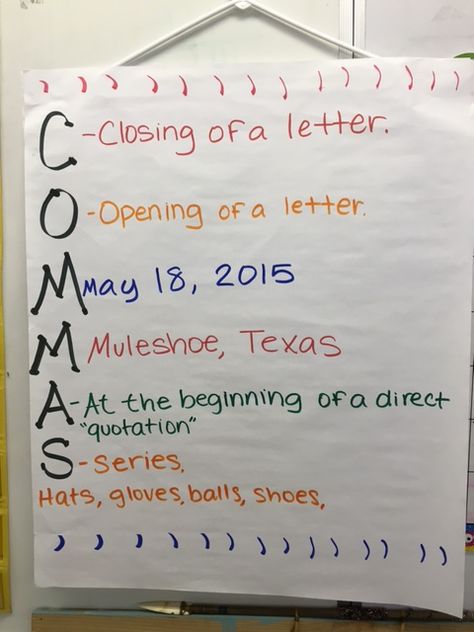 , , , , , , , , , , , , , , , ,
C - Closing of a letter.
O - Opening of a letter.
M May 18, 2015
M Muleshoe, Texas
A - At the beginning of a direct
"quotation"
S - series,
Hats, gloves, balls, shoes,
, , , , , , , , , , , , , , , ,